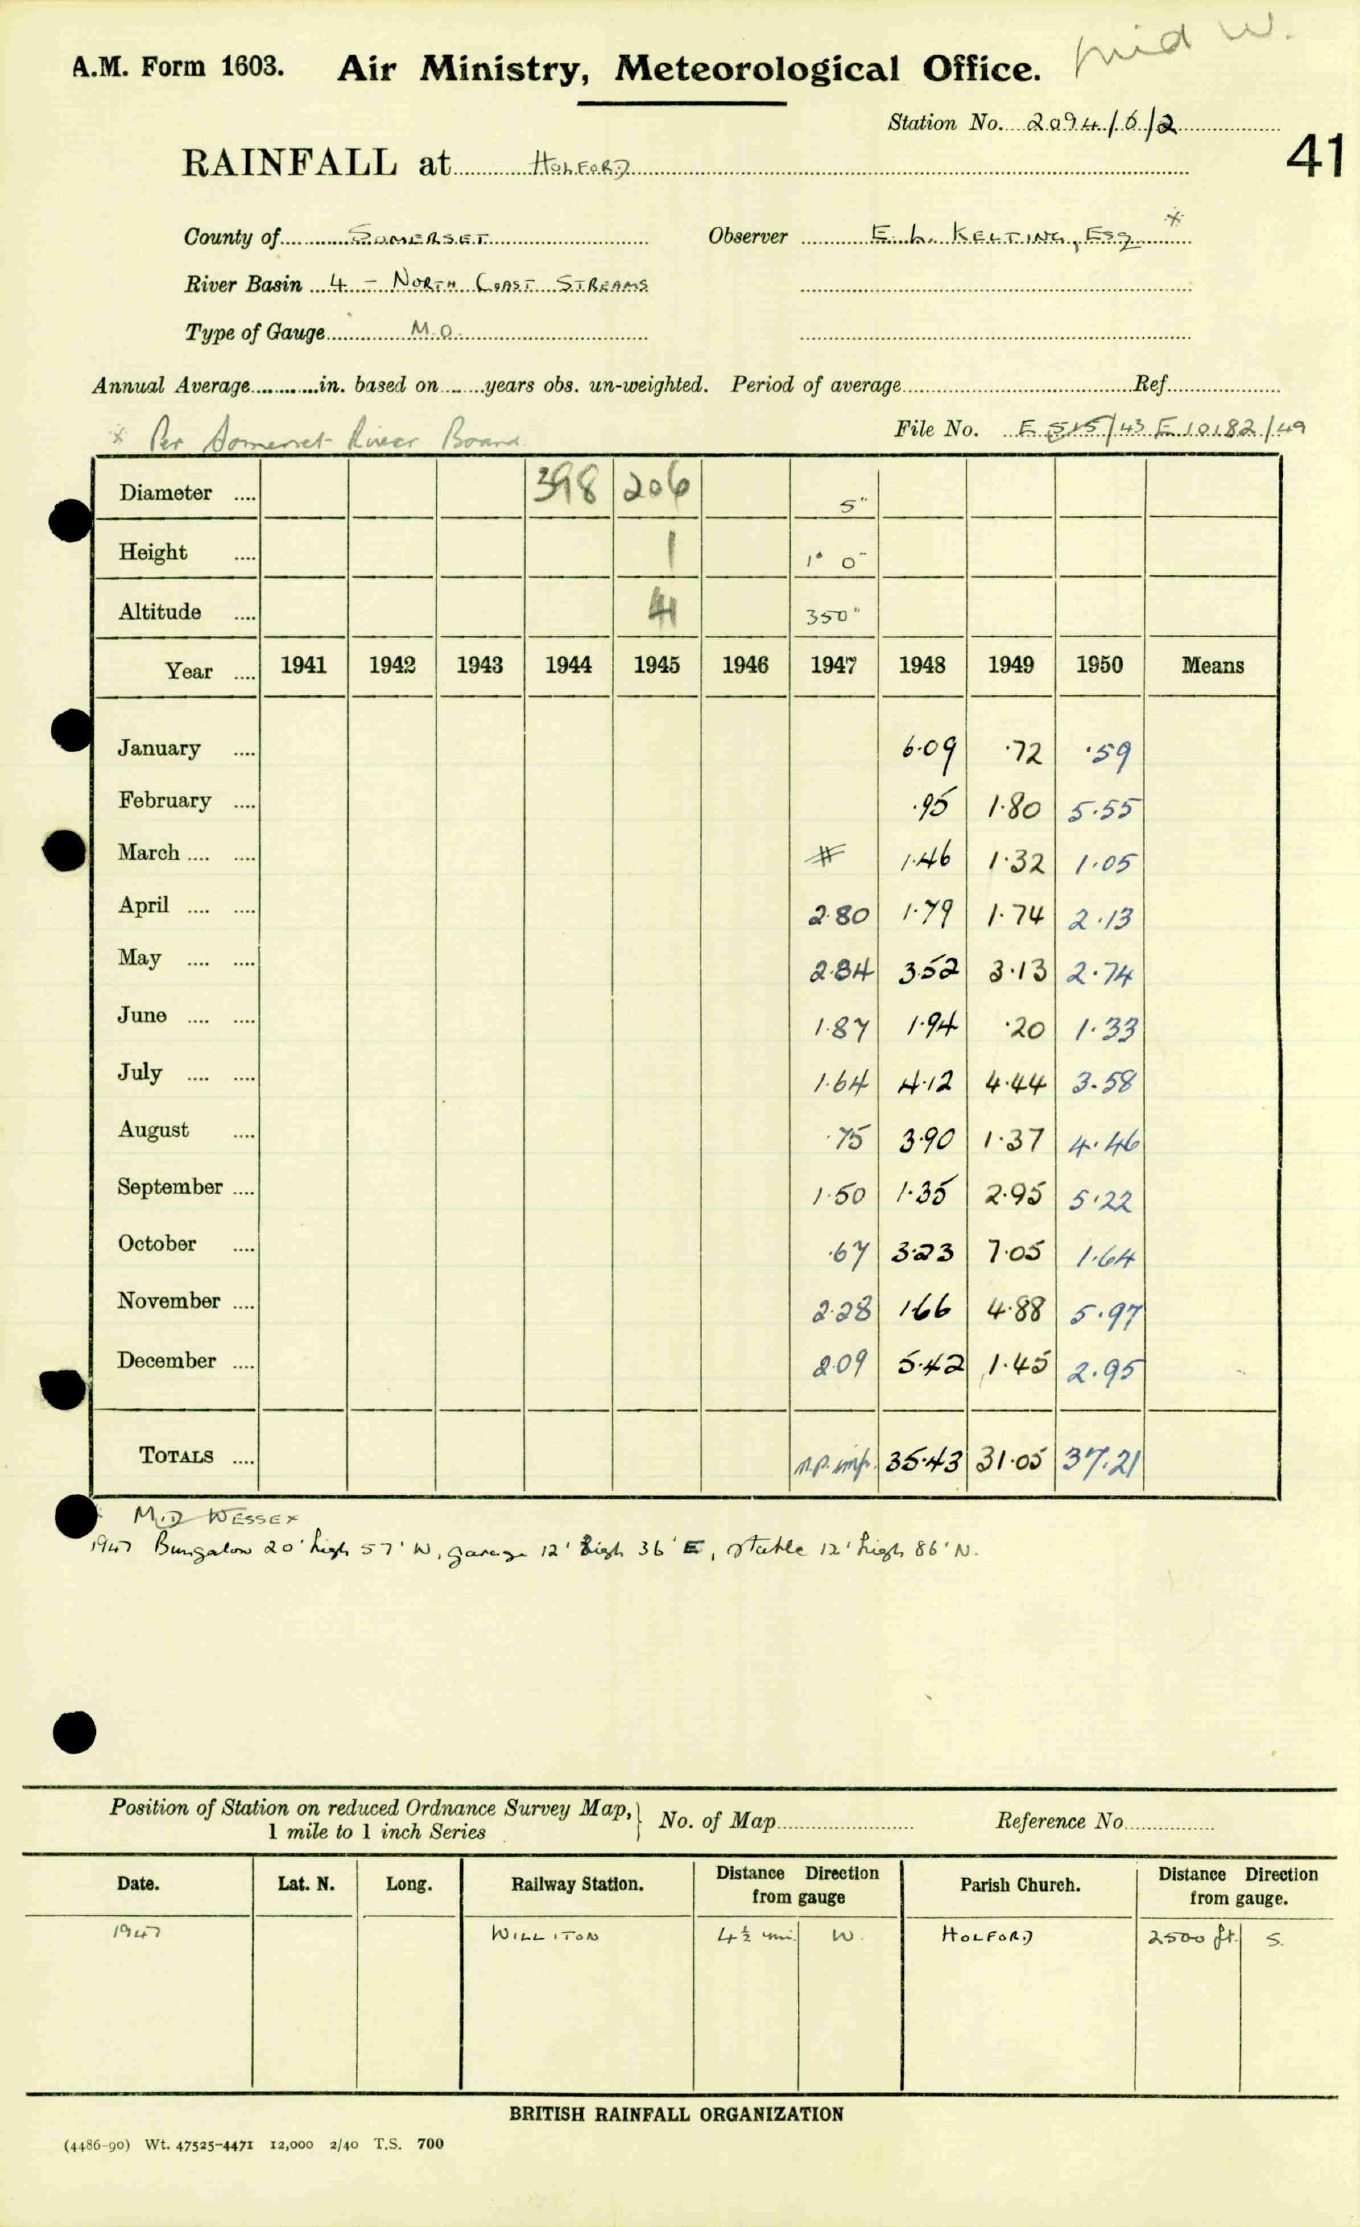 mid W.
A.M. Form 1603. Air Ministry, Meteorological Office.
Station No. 2094/6/2
41
RAINFALL at HOLFORD
County of SOMERSET Observer E. L. KELTING, ESQ *
River Basin 4 - NORTH COAST STREAMS
Type of Gauge M.O.
Annual Average in. based on years obs. un-weighted. Period of average Ref
* Per Somerset River Board File No. E 515/43 E 10182/49
Diameter .... 398 206 5"
Height .... 1 1' 0"
Altitude .... 41 350'
Year .... 1941 1942 1943 1944 1945 1946 1947 1948 1949 1950 Means
January .... 6.09 .72 .59
February .... .95 1.80 5.55
March .... .... 1.46 1.32 1.05
April .... .... 2.80 1.79 1.74 2.13
May .... .... 2.84 3.52 3.13 2.74
June .... .... 1.87 1.94 .20 1.33
July .... .... 1.64 4.12 4.44 3.58
August .... .75 3.90 1.37 4.46
September .... 1.50 1.35 2.95 5.22
October .... .67 3.23 7.05 1.64
November .... 2.28 1.66 4.88 5.97
December .... 2.09 5.42 1.45 2.95
TOTALS .... n.p. imp. 35.43 31.05 37.21
MID WESSEX
1947 Bungalow 20' high 57' W, garage 12' high 36' E, stable 12' high 86' N.
Position of Station on reduced Ordnance Survey Map, } No. of Map Reference No
1 mile to 1 inch Series
Date. Lat. N. Long. Railway Station. Distance Direction from gauge Parish Church. Distance Direction from gauge.
1947 WILLITON 4½ mi. W. HOLFORD 2500 ft. S.
BRITISH RAINFALL ORGANIZATION
(4486-90) Wt. 47525-4471 12,000 2/40 T.S. 700